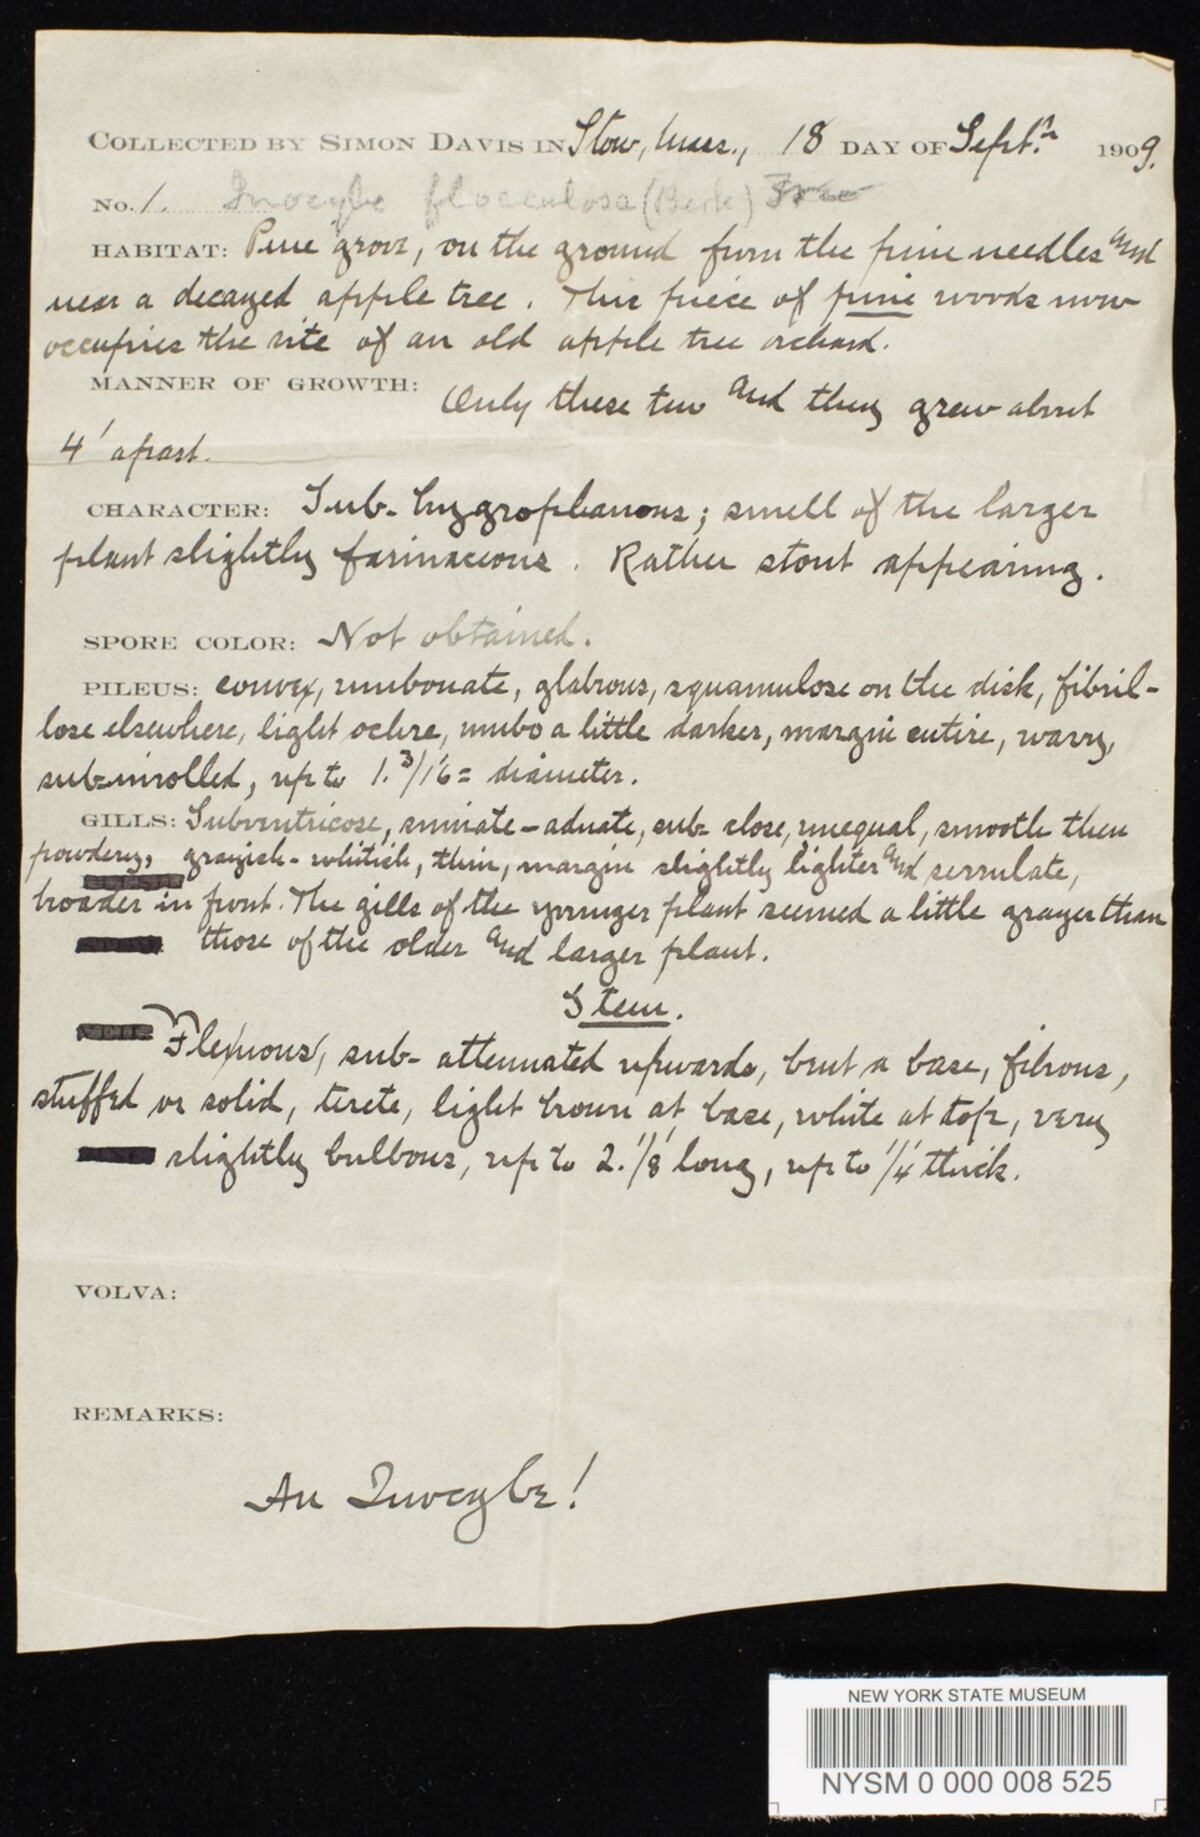 COLLECTED BY SIMON DAVIS IN Stow, Mass., 18 DAY OF Sept. 1909.
No. 1. Inocybe flocculosa (Berk)
HABITAT: Pine grove, on the ground from the pine needles and
near a decayed apple tree. This piece of pine woods now
occupies the site of an old apple tree orchard.
MANNER OF GROWTH: Only these two and they grew about
4' apart.
CHARACTER: Sub-hygrophanous; smell of the larger
plant slightly farinaceous. Rather stout appearing.
SPORE COLOR: Not obtained.
PILEUS: convex, umbonate, glabrous, squamulose on the disk, fibril-
lose elsewhere, light ochre, umbo a little darker, margin entire, wavy,
sub-inrolled, up to 1.3/16= diameter.
GILLS: Subventricose, sinuate-adnate, sub-close, unequal, smooth then
powdery, grayish-whitish, thin, margin slightly lighter and serrulate,
broader in front. The gills of the younger plant seemed a little grayer than
those of the older and larger plant.
Stem.
Flexuous, sub-attenuated upwards, bent a base, fibrous,
stuffed or solid, terete, light brown at base, white at top, very
slightly bulbous, up to 2.1/8' long, up to 1/4' thick.
VOLVA:
REMARKS:
An Inocybe!
NEW YORK STATE MUSEUM
NYSM 0 000 008 525